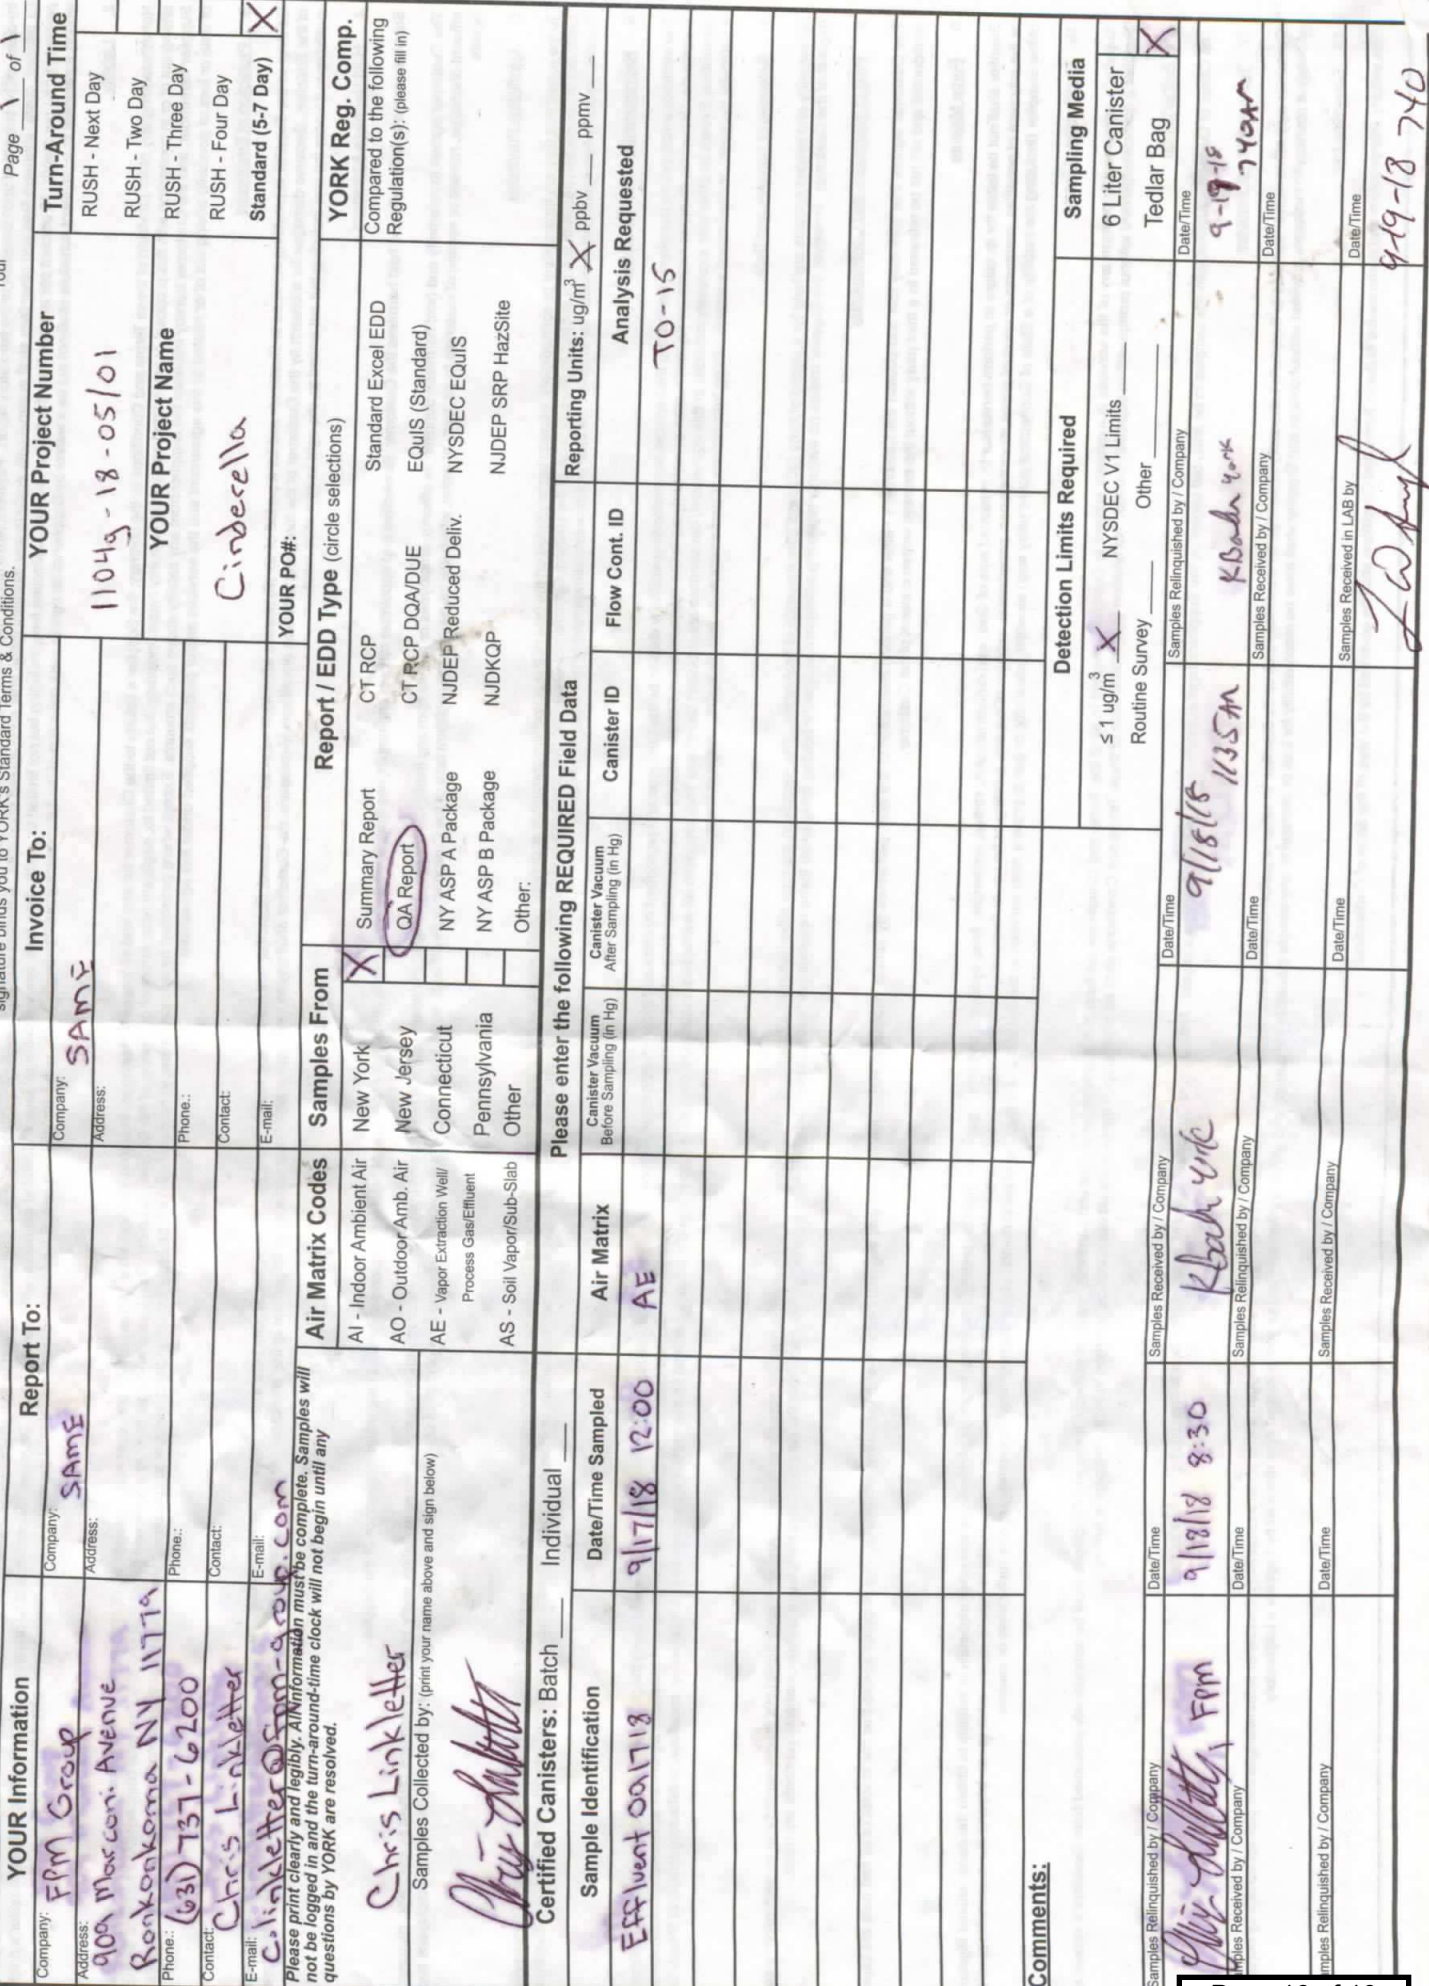 signature binds you to YORK's Standard Terms & Conditions.
Page 1 of 1
YOUR Information
Company: FPM Group
Address: 909 Marconi Avenue
Ronkonkoma NY 11779
Phone.: (631) 737-6200
Contact: Chris Linkletter
E-mail: C.linkletter@fpm-group.com
Report To:
Company: SAME
Address:
Phone.:
Contact:
E-mail:
Invoice To:
Company: SAME
Address:
Phone.:
Contact:
E-mail:
YOUR Project Number
1104g-18-05/01
YOUR Project Name
Cinderella
YOUR PO#:
Turn-Around Time
RUSH - Next Day
RUSH - Two Day
RUSH - Three Day
RUSH - Four Day
Standard (5-7 Day) X
Please print clearly and legibly. All Information must be complete. Samples will
not be logged in and the turn-around-time clock will not begin until any
questions by YORK are resolved.
Chris Linkletter
Samples Collected by: (print your name above and sign below)
Air Matrix Codes
AI - Indoor Ambient Air
AO - Outdoor Amb. Air
AE - Vapor Extraction Well/
Process Gas/Effluent
AS - Soil Vapor/Sub-Slab
Samples From
New York X
New Jersey
Connecticut
Pennsylvania
Other
Report / EDD Type (circle selections)
Summary Report CT RCP Standard Excel EDD
QA Report CT RCP DQA/DUE EQuIS (Standard)
NY ASP A Package NJDEP Reduced Deliv. NYSDEC EQuIS
NY ASP B Package NJDKQP NJDEP SRP HazSite
Other:
YORK Reg. Comp.
Compared to the following
Regulation(s): (please fill in)
Certified Canisters: Batch ___ Individual ___
Please enter the following REQUIRED Field Data
Reporting Units: ug/m3 X ppbv ___ ppmv ___
Sample Identification
Date/Time Sampled
Air Matrix
Canister Vacuum
Before Sampling (in Hg)
Canister Vacuum
After Sampling (in Hg)
Canister ID
Flow Cont. ID
Analysis Requested
Effluent 091718 9/17/18 12:00 AE TO-15
Comments:
Detection Limits Required
≤ 1 ug/m3 X NYSDEC V1 Limits ___
Routine Survey ___ Other ___
Sampling Media
6 Liter Canister
Tedlar Bag X
Samples Relinquished by / Company
FPM
Date/Time
9/18/18 8:30
Samples Received by / Company
Date/Time
9/18/18
1135 AM
Samples Relinquished by / Company
York
Date/Time
9-19-18
740AM
Samples Received by / Company
Date/Time
Samples Relinquished by / Company
Date/Time
Samples Received by / Company
Date/Time
Samples Relinquished by / Company
Date/Time
Samples Received by / Company
Date/Time
Samples Received in LAB by
Date/Time
9-19-18 740